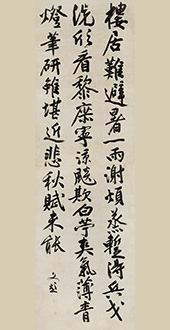 樓居難避暑一雨謝煩蒸暫得兵戈
洗欣看黎庶寧涼欺白苧爽氣薄青
燈筆研雖堪近悲秋賦未能
文